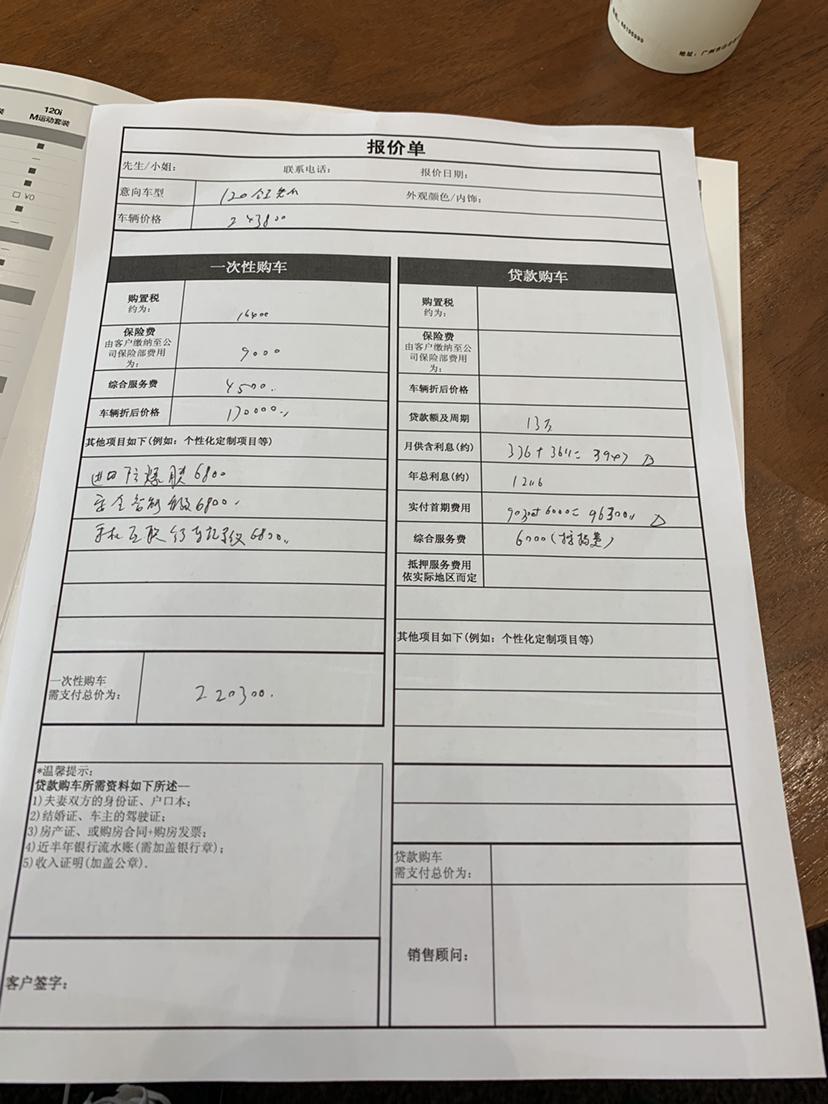 120i
M运动套装
报价单
先生/小姐: 联系电话: 报价日期:
意向车型 120 外观颜色/内饰:
车辆价格 243800
一次性购车
购置税
约为: 16400
保险费
由客户缴纳至公
司保险部费用
为: 9000
综合服务费 4500.
车辆折后价格 170000
其他项目如下(例如: 个性化定制项目等)
进口防爆膜 6800
安全 6800
手机互联行车记录仪 6800
一次性购车
需支付总价为: 220300.
*温馨提示:
贷款购车所需资料如下所述—
1)夫妻双方的身份证、户口本;
2)结婚证、车主的驾驶证;
3)房产证、或购房合同+购房发票;
4)近半年银行流水账(需加盖银行章);
5)收入证明(加盖公章).
客户签字:
贷款购车
购置税
约为:
保险费
由客户缴纳至公
司保险部费用
为:
车辆折后价格
贷款额及周期 13万
月供含利息(约) 336+3611=3947
年总利息(约)
实付首期费用 90300+6000=96300
综合服务费 6000(按揭费)
抵押服务费用
依实际地区而定
其他项目如下(例如: 个性化定制项目等)
贷款购车
需支付总价为:
销售顾问: